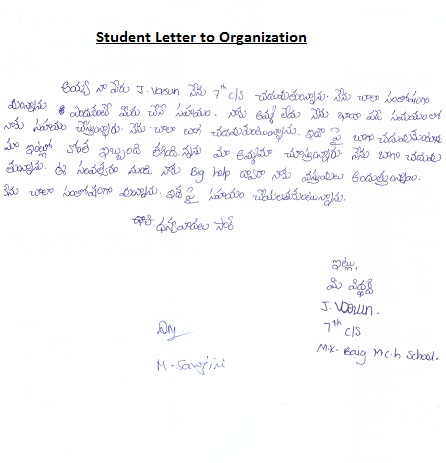 Student Letter to Organization
అయ్యా నా పేరు J. Varun నేను 7th c/s చదువుతున్నాను. నేను చాలా సంతోషంగా
ఉన్నాను ఎందుకంటే మీరు చేసే సహాయం. నాకు అమ్మ లేదు నేను ఇలాంటి సమయంలో
నాకు సహాయం చేస్తున్నారు. నేను చాలా బాగా చదువుకుంటున్నాను. ఇక పై బాగా చదువుకుంటాను
మా ఇంట్లో కొంత ఇబ్బంది నన్ను మా అమ్మమ్మ చూస్తున్నారు. నేను బాగా చదువు
తున్నాను. ఈ సంవత్సరం నుండి నాకు Big help నాకు పుస్తకాలు
నేను చాలా సంతోషంగా ఉన్నాను. ఇక పై సహాయం
ధన్యవాదాలు సార్
ఇట్లు,
మీ విద్యార్థి
J. Varun.
7th c/s
M.K. Baig M.C.h School.
M. Sanjini